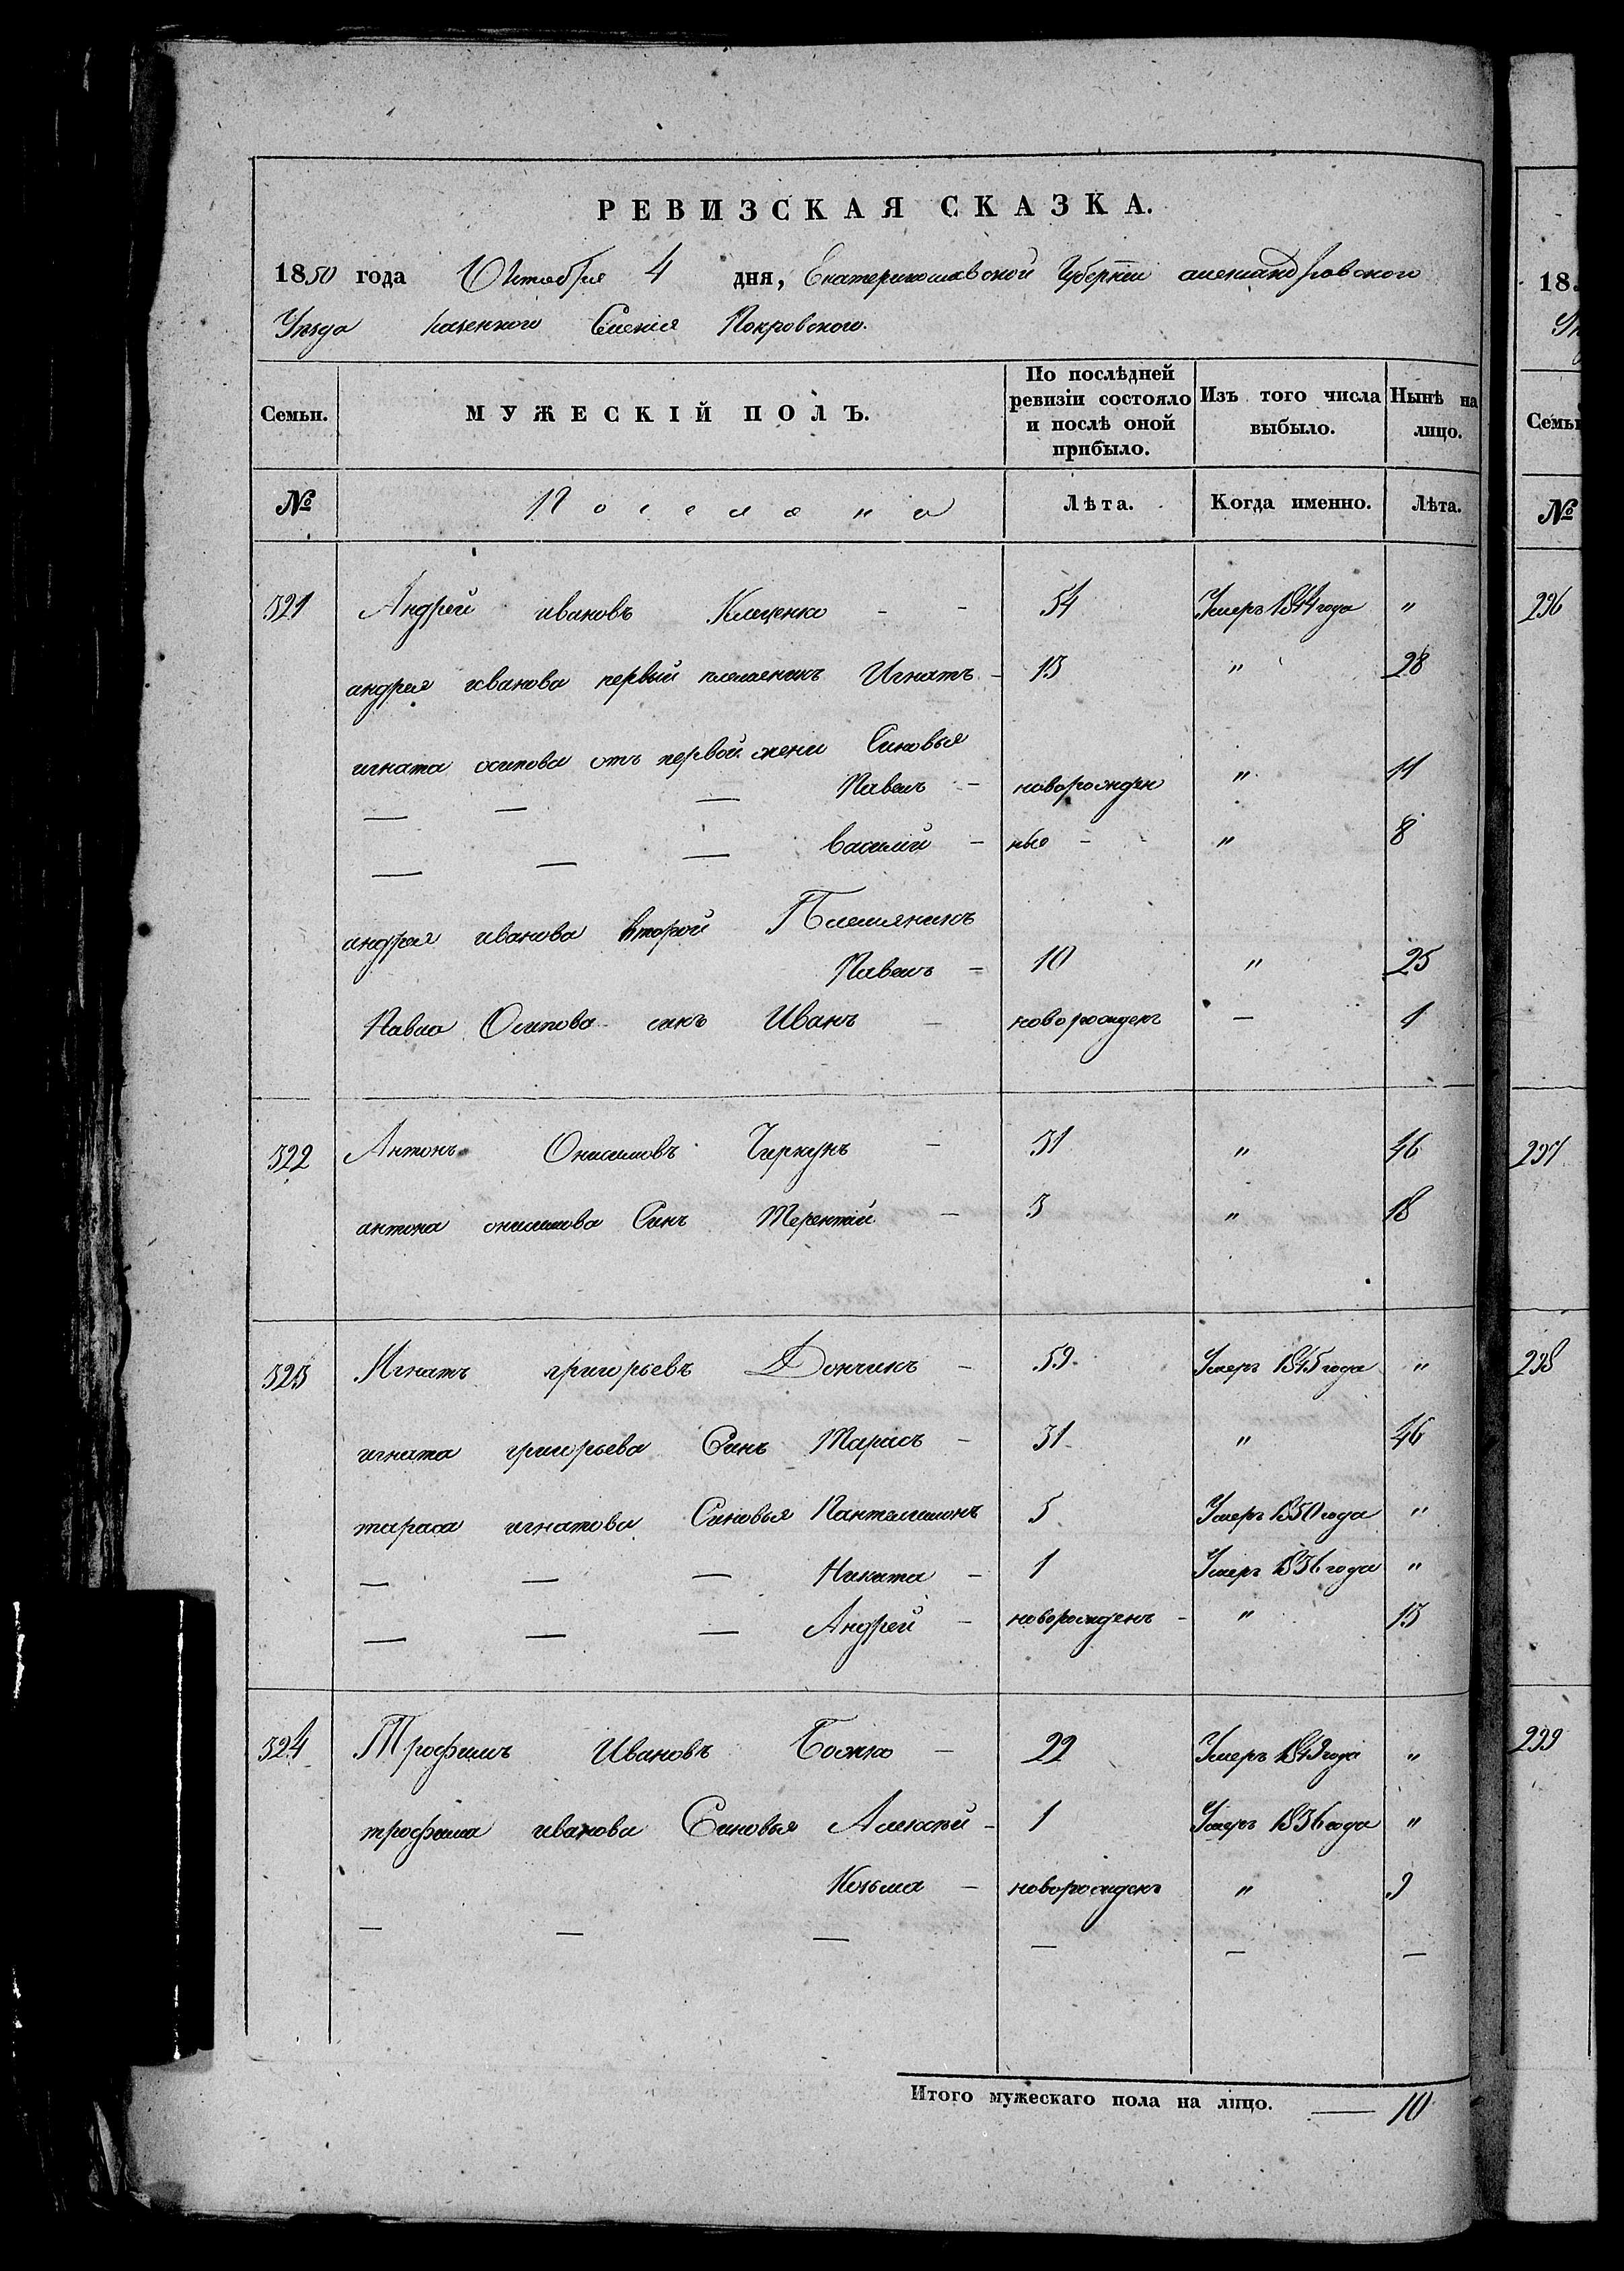 РЕВИЗСКАЯ СКАЗКА.
1850 года Октября 4 дня, Екатеринославской Губернiи александровского
Уезда казенного Селенiя Покровского.
Семьи. МУЖЕСКIЙ ПОЛЪ. По послѣдней ревизiи состояло и послѣ оной прибыло. Изъ того числа выбыло. Нынѣ на лицо.
№ Поселяна Лѣта. Когда именно. Лѣта.
321 Андрей ивановъ Клеценко - - 54 Умеръ 1844 года "
андрея иванова первый племеникъ Игнатъ - 13 " 28
игната осипова отъ первой жени Синовья
— — — Павелъ - новорожден " 11
— — — василiй - ныя - " 8
андрея иванова второй Племяникъ
Павелъ - 10 " 25
Павла Осипова синъ Иванъ - новорожденъ — 1
322 Антонъ Онисимовъ Чиркунъ - 31 " 46
антона онисимова Синъ Терентiй - 3 " 18
323 Игнатъ григорьевъ Дончикъ - 59 Умеръ 1845 года "
игната григорьева Синъ Тарасъ - 31 " 46
тараса игнатова Синовья Пантелимонъ 5 Умеръ 1850 года "
— — — Никита - 1 Умеръ 1836 года "
— — — Андрей - новорожденъ - " 13
324 Трофимъ Ивановъ Божко - 22 Умеръ 1849 года "
трофима иванова Синовья Алексѣй - 1 Умеръ 1836 года "
Козьма - новорожденъ " 9
— — — — — —
Итого мужескаго пола на лицо. — 10
18
Семьи
№
296
297
298
299